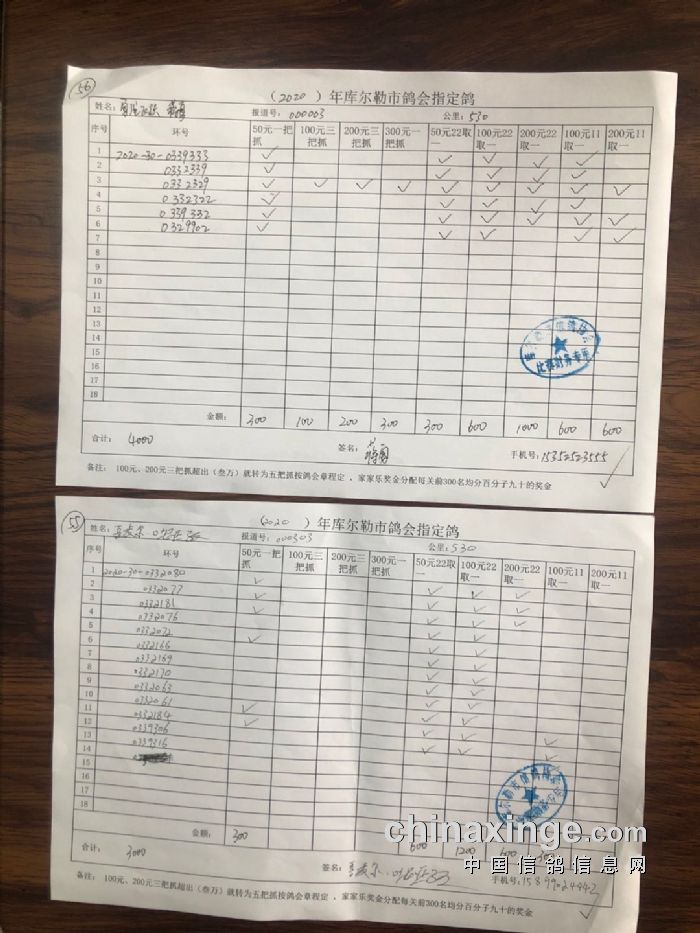 56
(2020)年库尔勒市鸽会指定鸽
姓名: 报道号: 000003 公里: 530
序号 环号 50元一把抓 100元三把抓 200元三把抓 300元一把抓 50元22取一 100元22取一 200元22取一 100元11取一 200元11取一
1 2020-30-0339333 ✓ ✓ ✓ ✓ ✓
2 0332339 ✓ ✓ ✓ ✓ ✓
3 0332329 ✓ ✓ ✓ ✓ ✓ ✓ ✓ ✓ ✓
4 0332322 ✓ ✓ ✓ ✓ ✓
5 0339332 ✓ ✓ ✓ ✓ ✓ ✓
6 0329902 ✓ ✓ ✓ ✓ ✓
7
8
9
10
11
12
13
14
15
16
17
18
金额: 300 100 200 300 300 600 1000 600 600
合计: 4000 签名: 手机号: 15352523555
备注: 100元、200元三把抓超出(叁万)就转为五把抓按鸽会章程定，家家乐奖金分配每关前300名均分百分子九十的奖金
55
(2020)年库尔勒市鸽会指定鸽
姓名: 报道号: 000303 公里: 530
序号 环号 50元一把抓 100元三把抓 200元三把抓 300元一把抓 50元22取一 100元22取一 200元22取一 100元11取一 200元11取一
1 2020-30-0332080 ✓
2 0332077 ✓ ✓ ✓ ✓
3 0332181 ✓ ✓ ✓ ✓
4 0332076 ✓ ✓ ✓
5 0332072 ✓ ✓ ✓
6 0332166
7 0332169
8 0332170
9 0332063
10 0332061
11 0332184
12 0339306
13 0339316
14
15
16
17
18
金额: 300 600 1200 600
合计: 3000 签名: 手机号:
备注: 100元、200元三把抓超出(叁万)就转为五把抓按鸽会章程定，家家乐奖金分配每关前300名均分百分子九十的奖金
chinaxinge.com
中国信鸽信息网